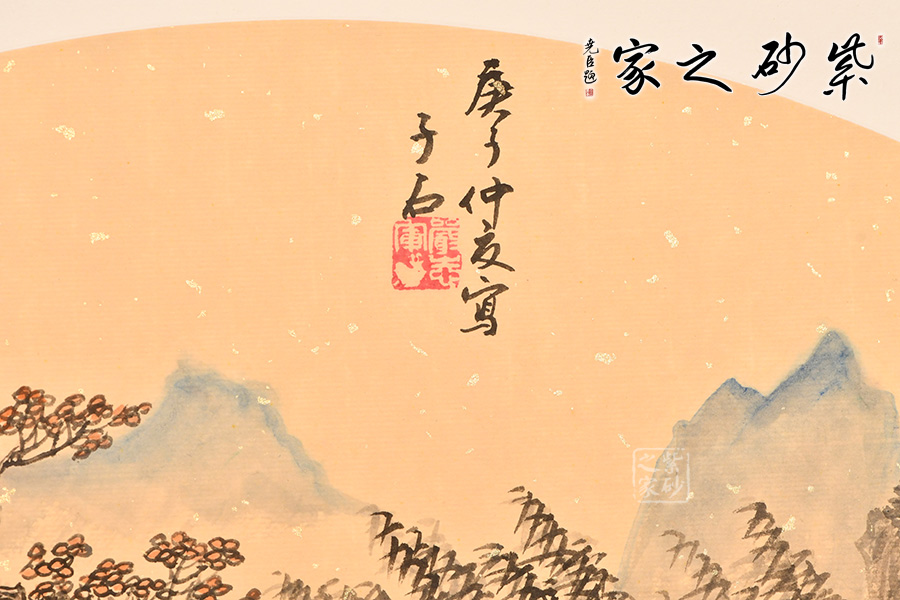 紫砂之家
尧臣题
庚子仲夏写
子石
嚴志軍
紫砂之家